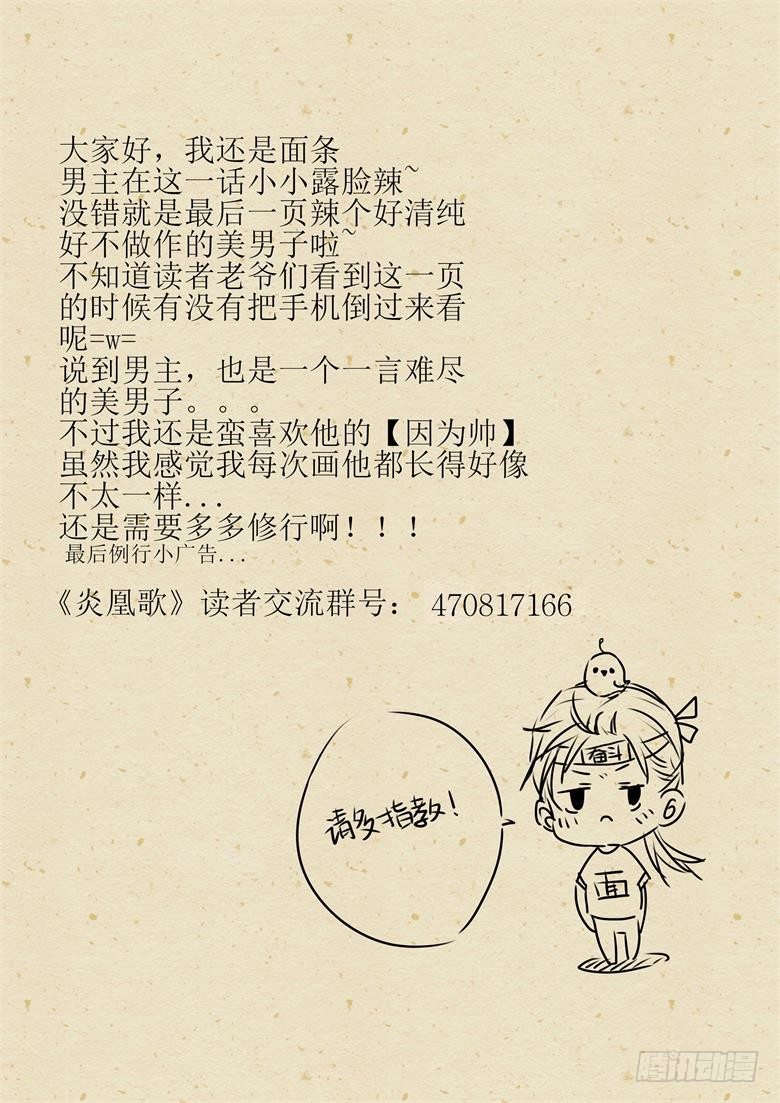 大家好，我还是面条
男主在这一话小小露脸辣~
没错就是最后一页辣个好清纯
好不做作的美男子啦~
不知道读者老爷们看到这一页
的时候有没有把手机倒过来看
呢=w=
说到男主，也是一个一言难尽
的美男子。。。
不过我还是蛮喜欢他的【因为帅】
虽然我感觉我每次画他都长得好像
不太一样...
还是需要多多修行啊！！！
最后例行小广告...
《炎凰歌》读者交流群号： 470817166
奋斗
请多指教！
面
腾讯动漫